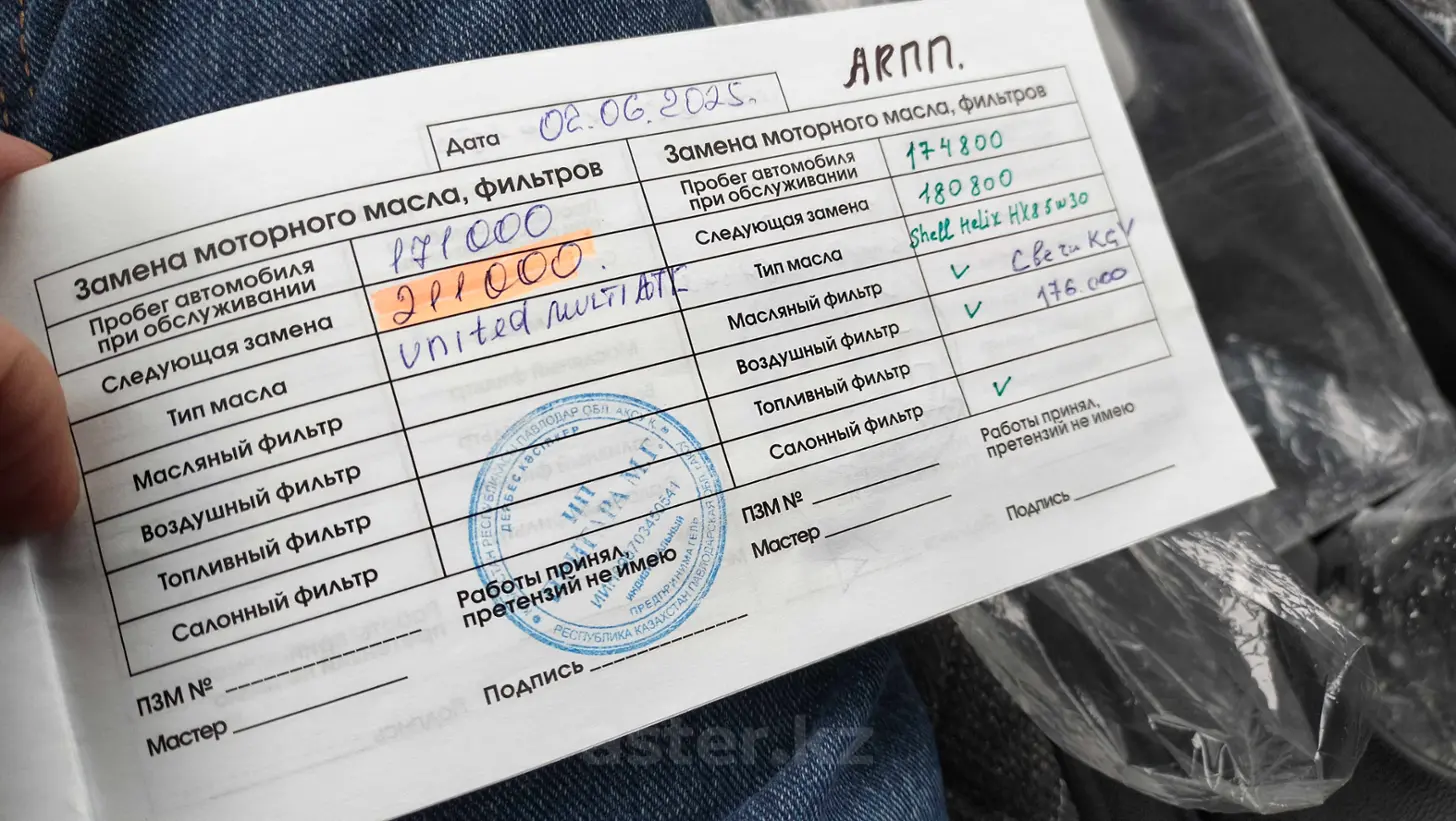 АКПП.
Дата 02.06.2025.
Замена моторного масла, фильтров
Пробег автомобиля
при обслуживании 171000
Следующая замена 211000.
Тип масла United MULTI ATF
Масляный фильтр
Воздушный фильтр
Топливный фильтр
Салонный фильтр
Работы принял,
претензий не имею
ПЗМ №
Мастер
Подпись
Замена моторного масла, фильтров
Пробег автомобиля
при обслуживании 174800
Следующая замена 180800
Тип масла Shell Helix HX8 5w30
Масляный фильтр ✓ Свечи
Воздушный фильтр ✓ 176.000
Топливный фильтр
Салонный фильтр ✓
Работы принял,
претензий не имею
ПЗМ №
Мастер
Подпись
ПАВЛОДАР ОБЛ. АКСУ Қ.
ИП
ИНДИВИДУАЛЬНЫЙ
ПРЕДПРИНИМАТЕЛЬ
РЕСПУБЛИКА КАЗАХСТАН ПАВЛОДАРСКАЯ ОБЛ.
aster.kz